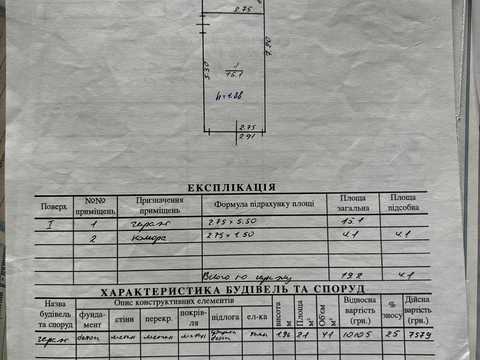 2.75
5.50
7.90
1
15.1
h=1.98
2.75
2.91
ЕКСПЛІКАЦІЯ
Поверх. №№ приміщень Призначення приміщень Формула підрахунку площі Площа загальна Площа підсобна
I 1 гараж 2.75 x 5.50 15.1
2 комора 2.75 x 1.50 4.1 4.1
Всього по гаражу 19.2 4.1
ХАРАКТЕРИСТИКА БУДІВЕЛЬ ТА СПОРУД
Назва будівель та споруд Опис конструктивних елементів висота м Площа м² Об'єм м³ Відносна вартість (грн.) % зносу Дійсна вартість (грн.)
фундамент стіни перекр. покрівля підлога ел-ка
гараж бетон метал метал метал 1.96 21 41 10105 25 7579